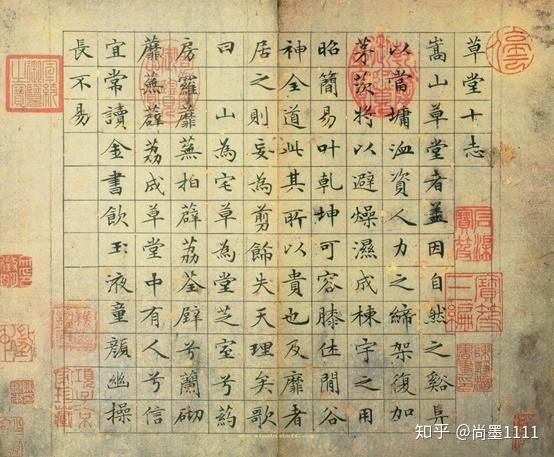 草堂十志
嵩山草堂者蓋因自然之谿阜
以當墉洫資人力之締架復加
茅茨將以避燥濕成棟宇之用
昭簡易叶乾坤可容膝休閒谷
神全道此其所以貴也及靡者
居之則妄為剪飾失天理矣歌
曰 山為宅草為堂芝室兮葯
房羅蘼蕪拍薜荔荃壁兮蘭砌
蘼蕪薜荔成草堂中有人兮信
宜常讀金書飲玉液童顏幽操
長不易
知乎 @尚墨1111